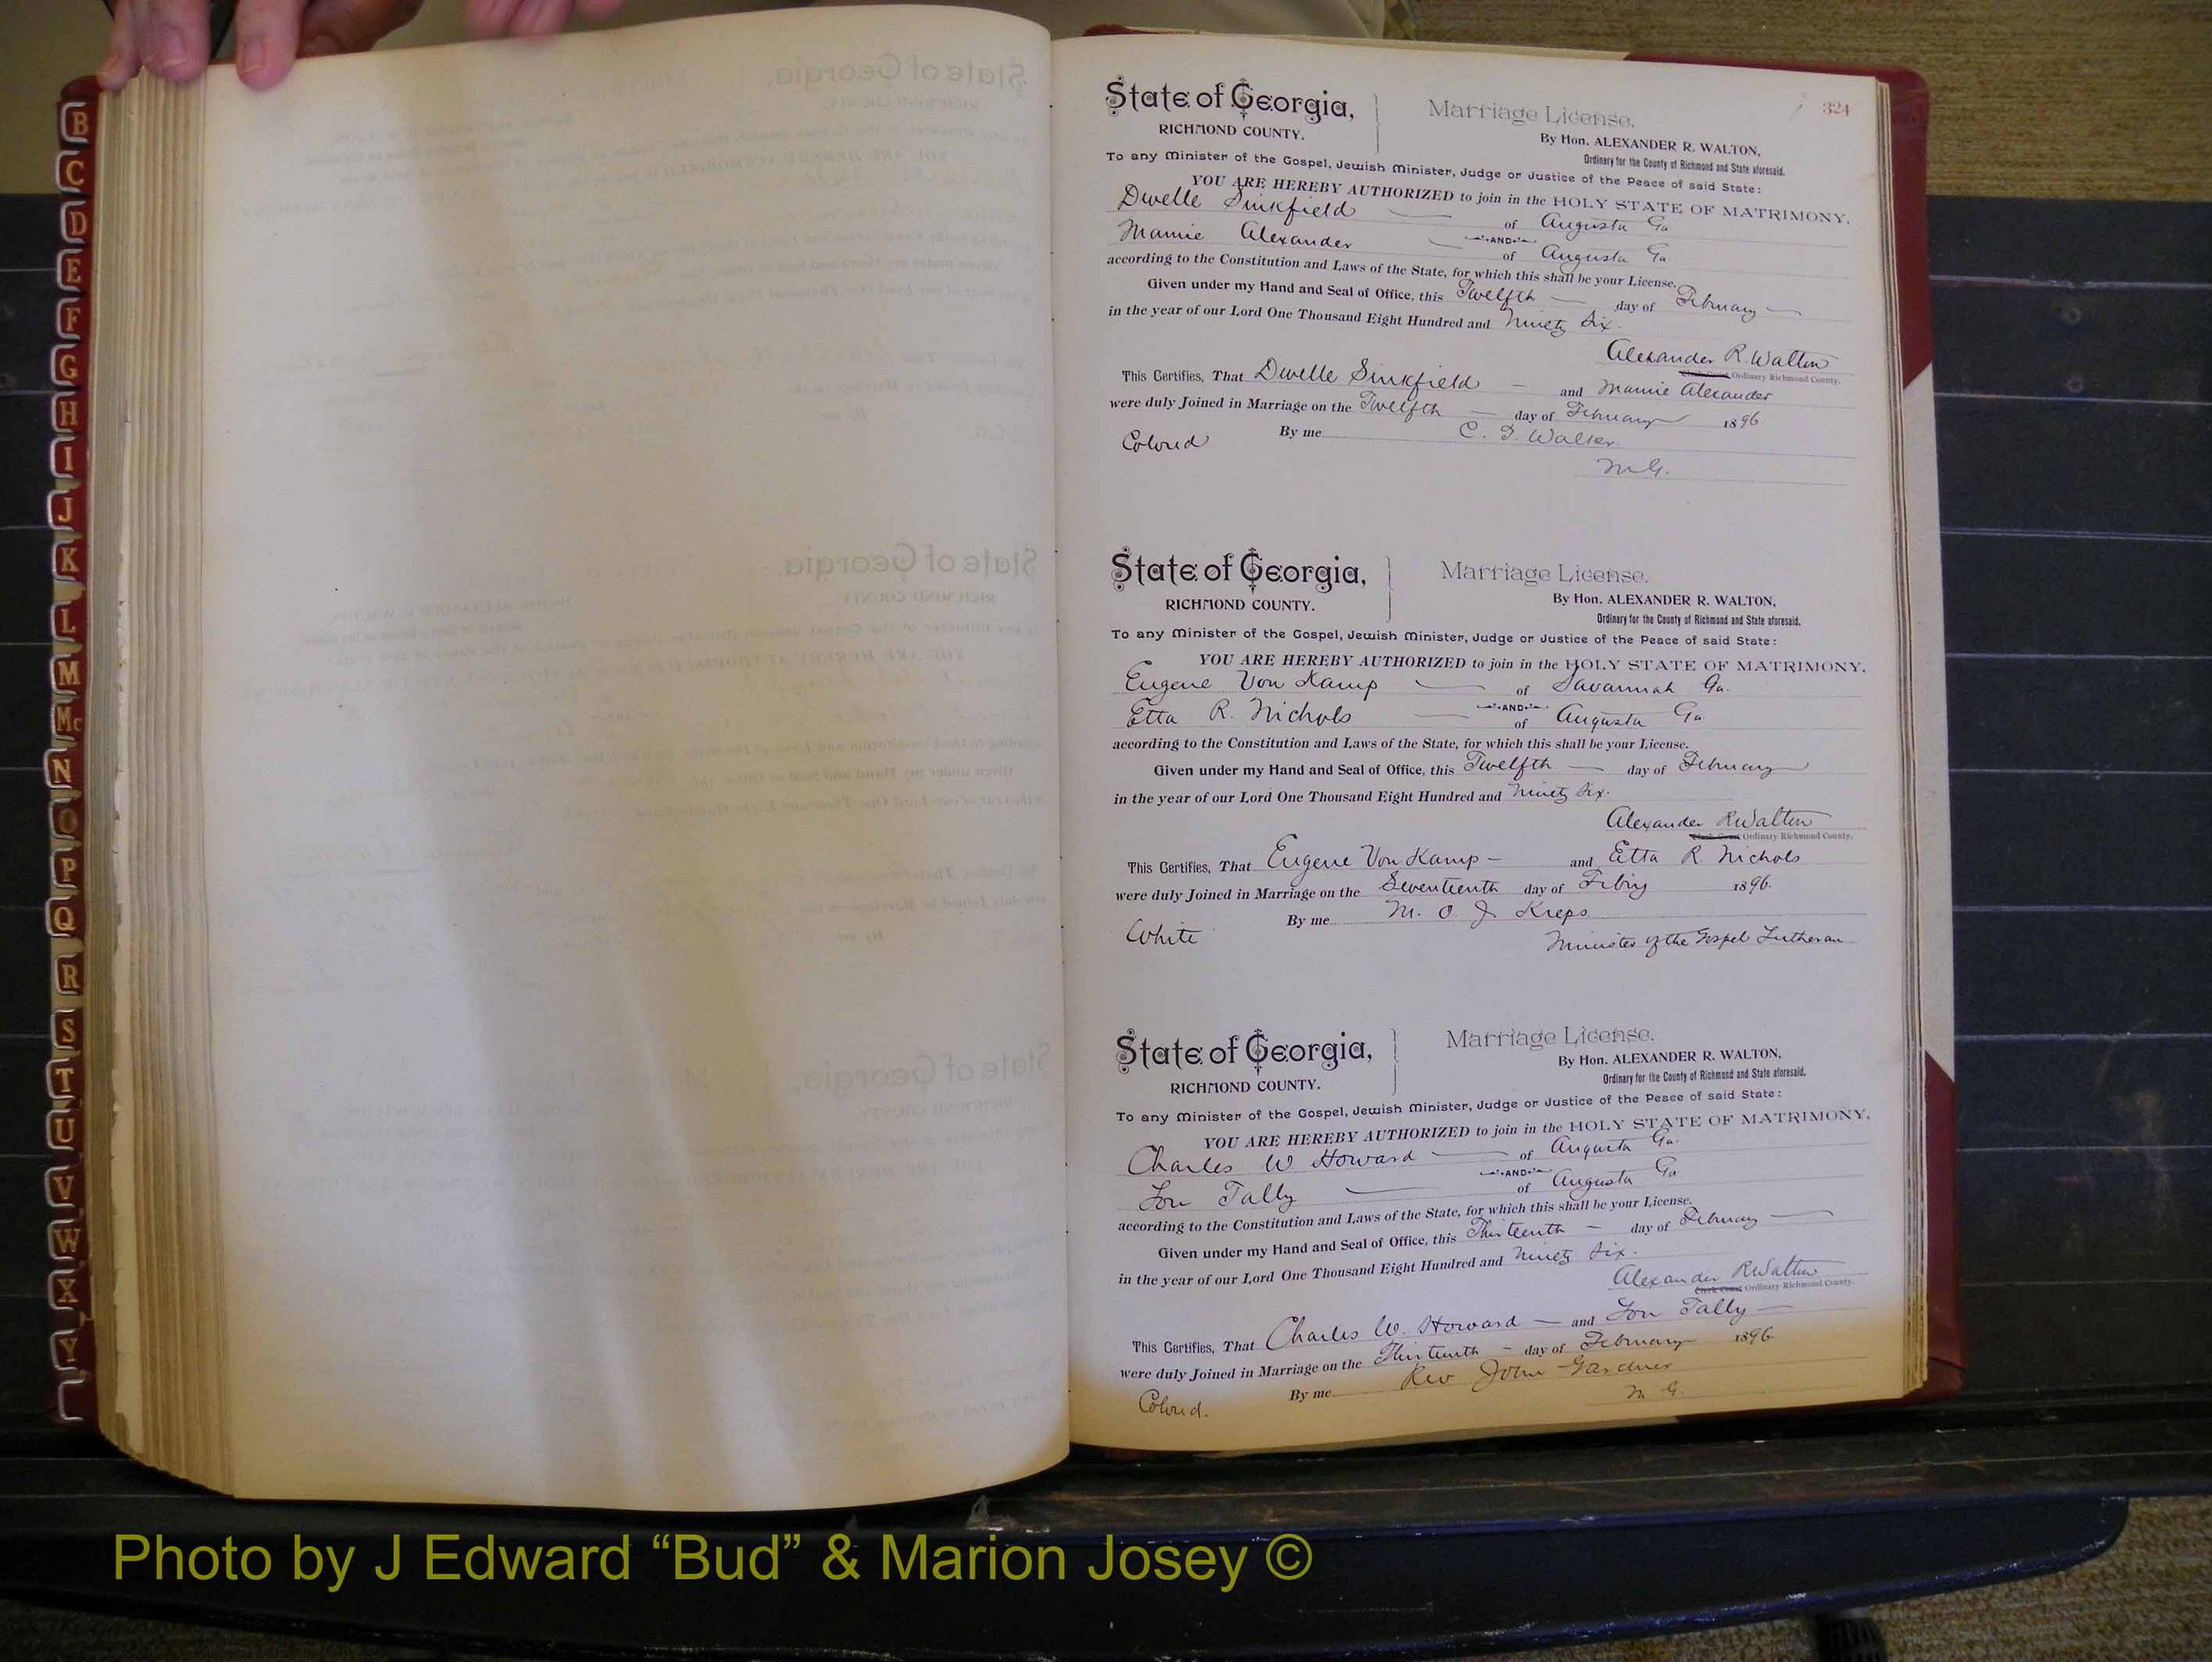 B
C
D
E
F
G
H
I
J
K
L
M
Mc
N
O
P
Q
R
S
T
U
V
W
X
Y
324
State of Georgia,
RICHMOND COUNTY.
Marriage License.
By Hon. ALEXANDER R. WALTON,
Ordinary for the County of Richmond and State aforesaid.
To any Minister of the Gospel, Jewish Minister, Judge or Justice of the Peace of said State:
YOU ARE HEREBY AUTHORIZED to join in the HOLY STATE OF MATRIMONY,
Dwelle Sinkfield of Augusta Ga
AND
Mamie Alexander of Augusta Ga
according to the Constitution and Laws of the State, for which this shall be your License.
Given under my Hand and Seal of Office, this Twelfth day of February
in the year of our Lord One Thousand Eight Hundred and Ninety Six.
Alexander R. Walton
Clerk Court Ordinary Richmond County.
This Certifies, That Dwelle Sinkfield and Mamie Alexander
were duly Joined in Marriage on the Twelfth day of February 1896
Colored By me C. T. Walker
M.G.
State of Georgia,
RICHMOND COUNTY.
Marriage License.
By Hon. ALEXANDER R. WALTON,
Ordinary for the County of Richmond and State aforesaid.
To any Minister of the Gospel, Jewish Minister, Judge or Justice of the Peace of said State:
YOU ARE HEREBY AUTHORIZED to join in the HOLY STATE OF MATRIMONY,
Eugene Von Kamp of Savannah Ga.
AND
Etta R. Nichols of Augusta Ga
according to the Constitution and Laws of the State, for which this shall be your License.
Given under my Hand and Seal of Office, this Twelfth day of February
in the year of our Lord One Thousand Eight Hundred and Ninety Six.
Alexander R Walton
Clerk Court Ordinary Richmond County.
This Certifies, That Eugene Von Kamp and Etta R. Nichols
were duly Joined in Marriage on the Seventeenth day of Febry 1896.
White By me M. O. J. Kreps
Minister of the Gospel Lutheran
State of Georgia,
RICHMOND COUNTY.
Marriage License.
By Hon. ALEXANDER R. WALTON,
Ordinary for the County of Richmond and State aforesaid.
To any Minister of the Gospel, Jewish Minister, Judge or Justice of the Peace of said State:
YOU ARE HEREBY AUTHORIZED to join in the HOLY STATE OF MATRIMONY,
Charles W Howard of Augusta Ga.
AND
Lou Tally of Augusta Ga
according to the Constitution and Laws of the State, for which this shall be your License.
Given under my Hand and Seal of Office, this Thirteenth day of February
in the year of our Lord One Thousand Eight Hundred and Ninety Six.
Alexander R Walton
Clerk Court Ordinary Richmond County.
This Certifies, That Charles W. Howard and Lou Tally
were duly Joined in Marriage on the Thirteenth day of February 1896
Colored. By me Rev John Gardner
M G.
Photo by J Edward “Bud” & Marion Josey ©